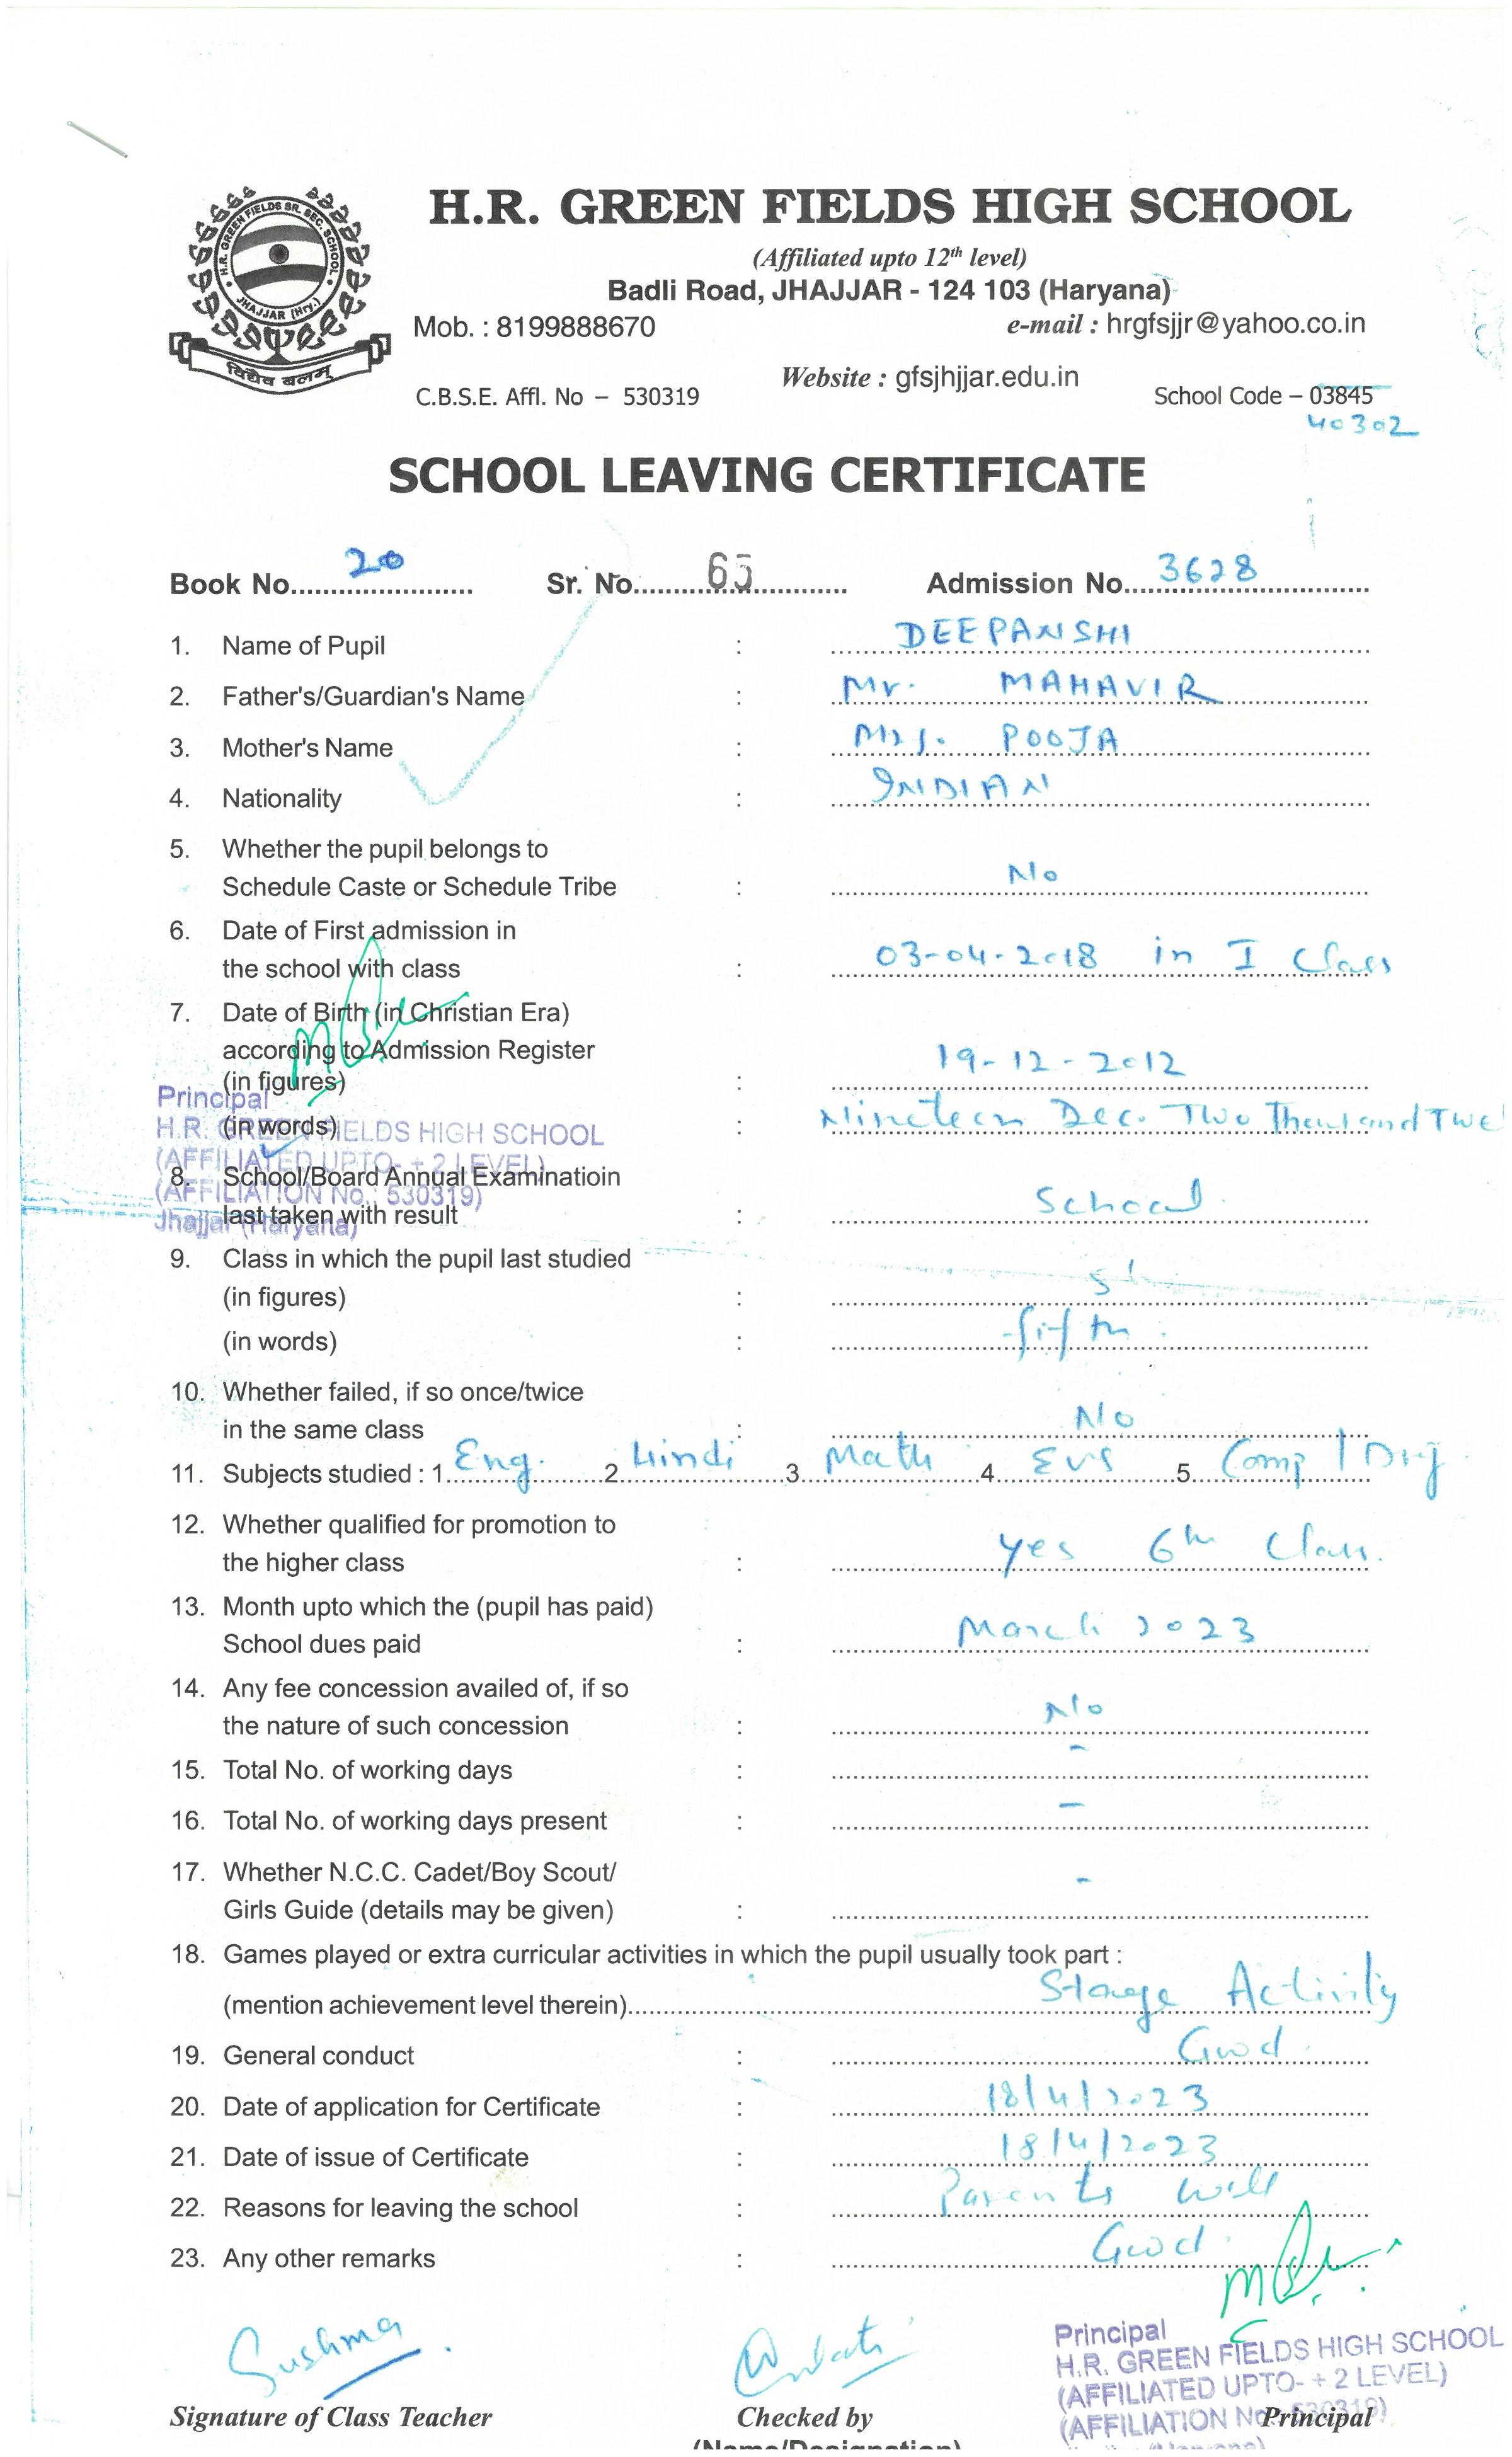 H.R. GREEN FIELDS SR. SEC. SCHOOL
JHAJJAR (Hry.)
विद्यैव बलम्
H.R. GREEN FIELDS HIGH SCHOOL
(Affiliated upto 12th level)
Badli Road, JHAJJAR - 124 103 (Haryana)
Mob. : 8199888670 e-mail : hrgfsjjr@yahoo.co.in
Website : gfsjhjjar.edu.in
C.B.S.E. Affl. No – 530319 School Code – 03845
40302
SCHOOL LEAVING CERTIFICATE
Book No. 20 Sr. No. 65 Admission No. 3628
1. Name of Pupil : DEEPANSHI
2. Father's/Guardian's Name : Mr. MAHAVIR
3. Mother's Name : Mrs. POOJA
4. Nationality : INDIAN
5. Whether the pupil belongs to
Schedule Caste or Schedule Tribe : No
6. Date of First admission in
the school with class : 03-04-2018 in I Class
7. Date of Birth (in Christian Era)
according to Admission Register
(in figures) : 19-12-2012
(in words) : Nineteen Dec. Two Thousand Twe
Principal
H.R. GREEN FIELDS HIGH SCHOOL
(AFFILIATED UPTO- + 2 LEVEL)
(AFFILIATION No.: 530319)
Jhajjar (Haryana)
8. School/Board Annual Examinatioin
last taken with result : School
9. Class in which the pupil last studied
(in figures) : 5
(in words) : fifth
10. Whether failed, if so once/twice
in the same class : No
11. Subjects studied : 1. Eng. 2. Hindi 3. Math 4. EVS 5. Comp / Drg
12. Whether qualified for promotion to
the higher class : yes 6th Class.
13. Month upto which the (pupil has paid)
School dues paid : March 2023
14. Any fee concession availed of, if so
the nature of such concession : No
15. Total No. of working days : -
16. Total No. of working days present : -
17. Whether N.C.C. Cadet/Boy Scout/
Girls Guide (details may be given) : -
18. Games played or extra curricular activities in which the pupil usually took part :
(mention achievement level therein) Stage Activity
19. General conduct : Good.
20. Date of application for Certificate : 18/4/2023
21. Date of issue of Certificate : 18/4/2023
22. Reasons for leaving the school : Parents will
23. Any other remarks : Good.
Sushma
Principal
H.R. GREEN FIELDS HIGH SCHOOL
(AFFILIATED UPTO- + 2 LEVEL)
(AFFILIATION No.: 530319)
Signature of Class Teacher Checked by Principal
(Name/Designation)